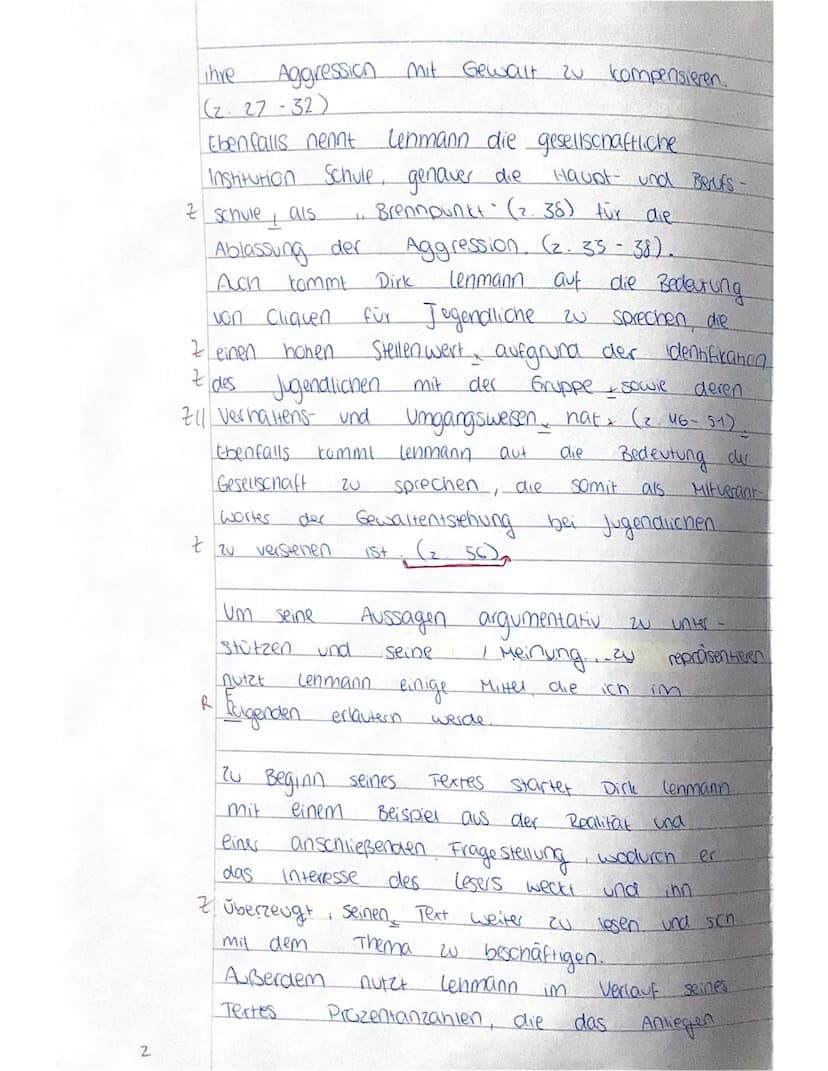 ihre Aggression mit Gewalt zu kompensieren.
(Z. 27 - 32)
Ebenfalls nennt Lehmann die gesellschaftliche
Institution Schule, genauer die Haupt- und Berufs-
Z schule, als „Brennpunkt" (Z. 38) für die
Ablassung der Aggression. (Z. 33 - 38).
Ach kommt Dirk Lehmann auf die Bedeutung
von Cliquen für Jugendliche zu sprechen, die
Z einen hohen Stellenwert, aufgrund der Identifikation
Z des Jugendlichen mit der Gruppe, sowie deren
Z|| Verhaltens- und Umgangsweisen, hat. (Z. 46 - 51).
Ebenfalls kommt Lehmann auf die Bedeutung der
Gesellschaft zu sprechen, die somit als Mitverant-
wortes der Gewaltentstehung bei Jugendlichen
Z zu verstehen ist. (Z. 56).
Um seine Aussagen argumentativ zu unter-
stützen und seine Meinung zu repräsentieren
nutzt Lehmann einige Mittel, die ich im
R Folgenden erläutern werde.
Zu Beginn seines Textes startet Dirk Lehmann
mit einem Beispiel aus der Realität und
einer anschließenden Fragestellung, wodurch er
das Interesse des Lesers weckt und ihn
Z überzeugt, seinen Text weiter zu lesen und sich
mit dem Thema zu beschäftigen.
Außerdem nutzt Lehmann im Verlauf seines
Textes Prozentanzahlen, die das Anliegen
2